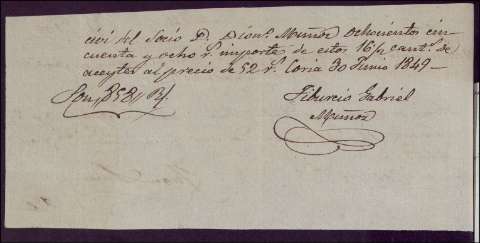 civi del Socio D. Dion.º Muñoz ochocientos cin
cuenta y ocho r.s importes de estos 16½ cant.s de
aceytes al precio de 52 r.s Coria 30 Junio 1849
Son, 858,, R.s
Tiburcio Gabriel
Muñoz